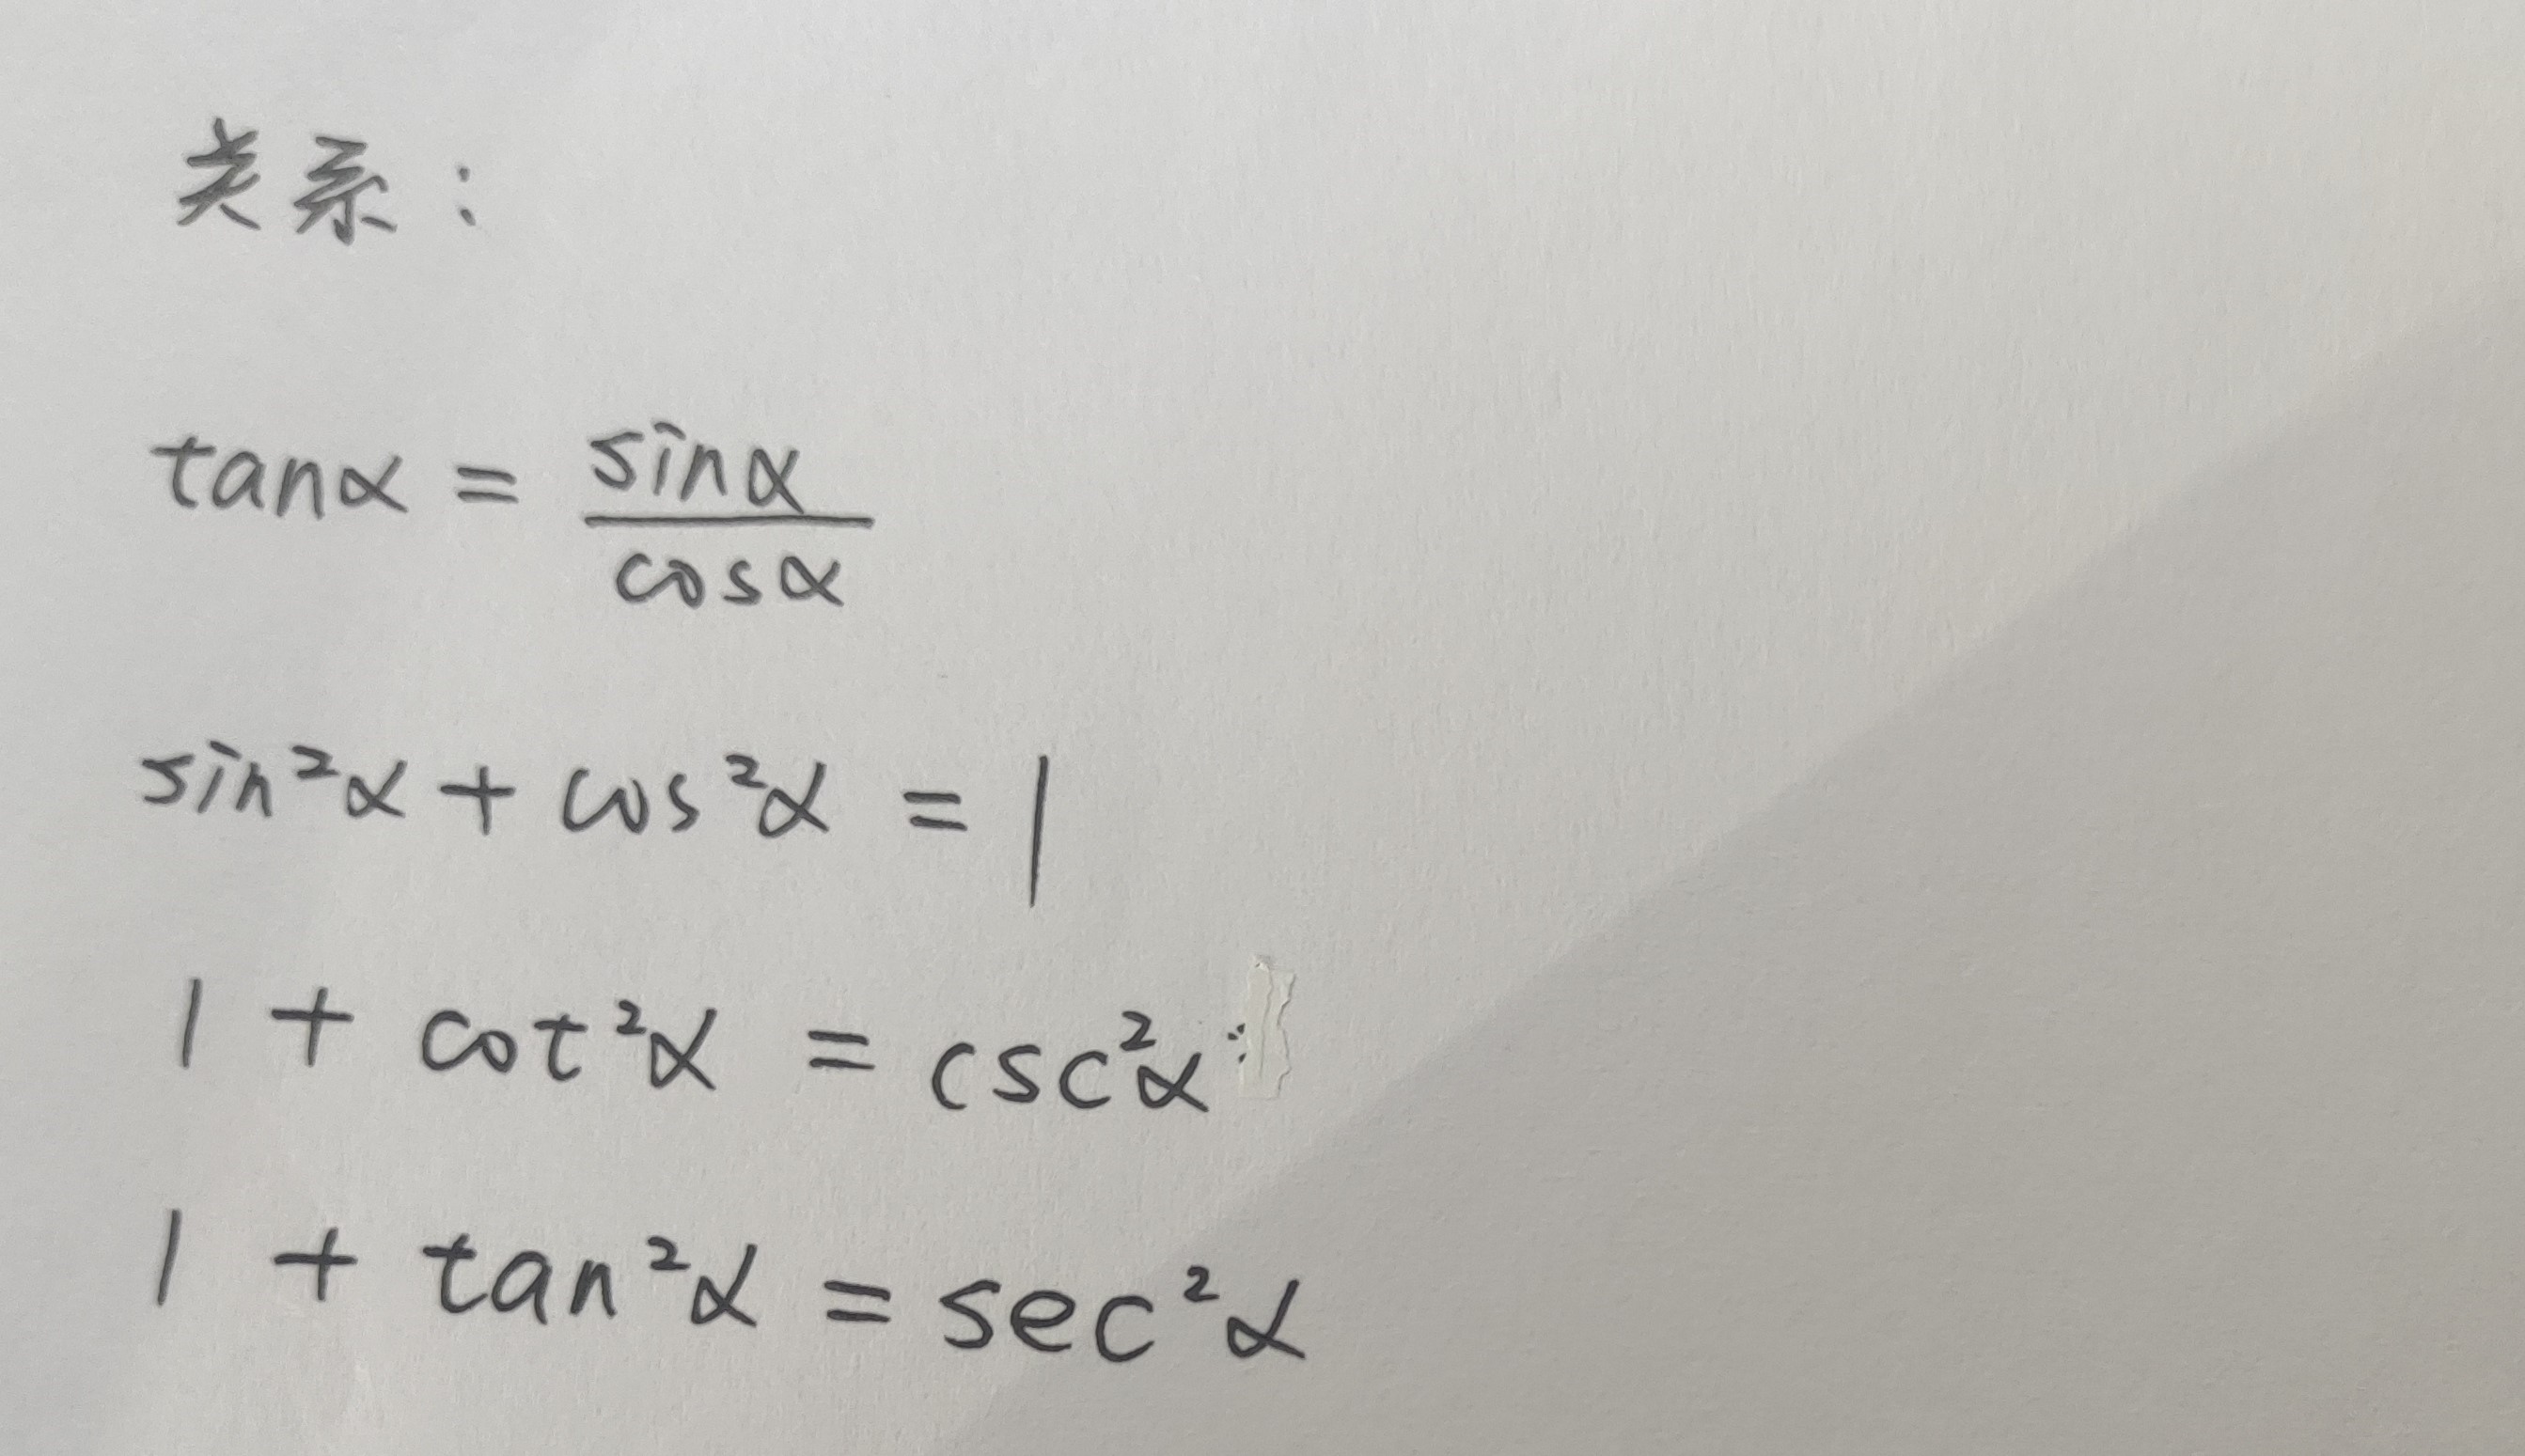 关系：
tanα = sinα/cosα
sin²α + cos²α = 1
1 + cot²α = csc²α
1 + tan²α = sec²α